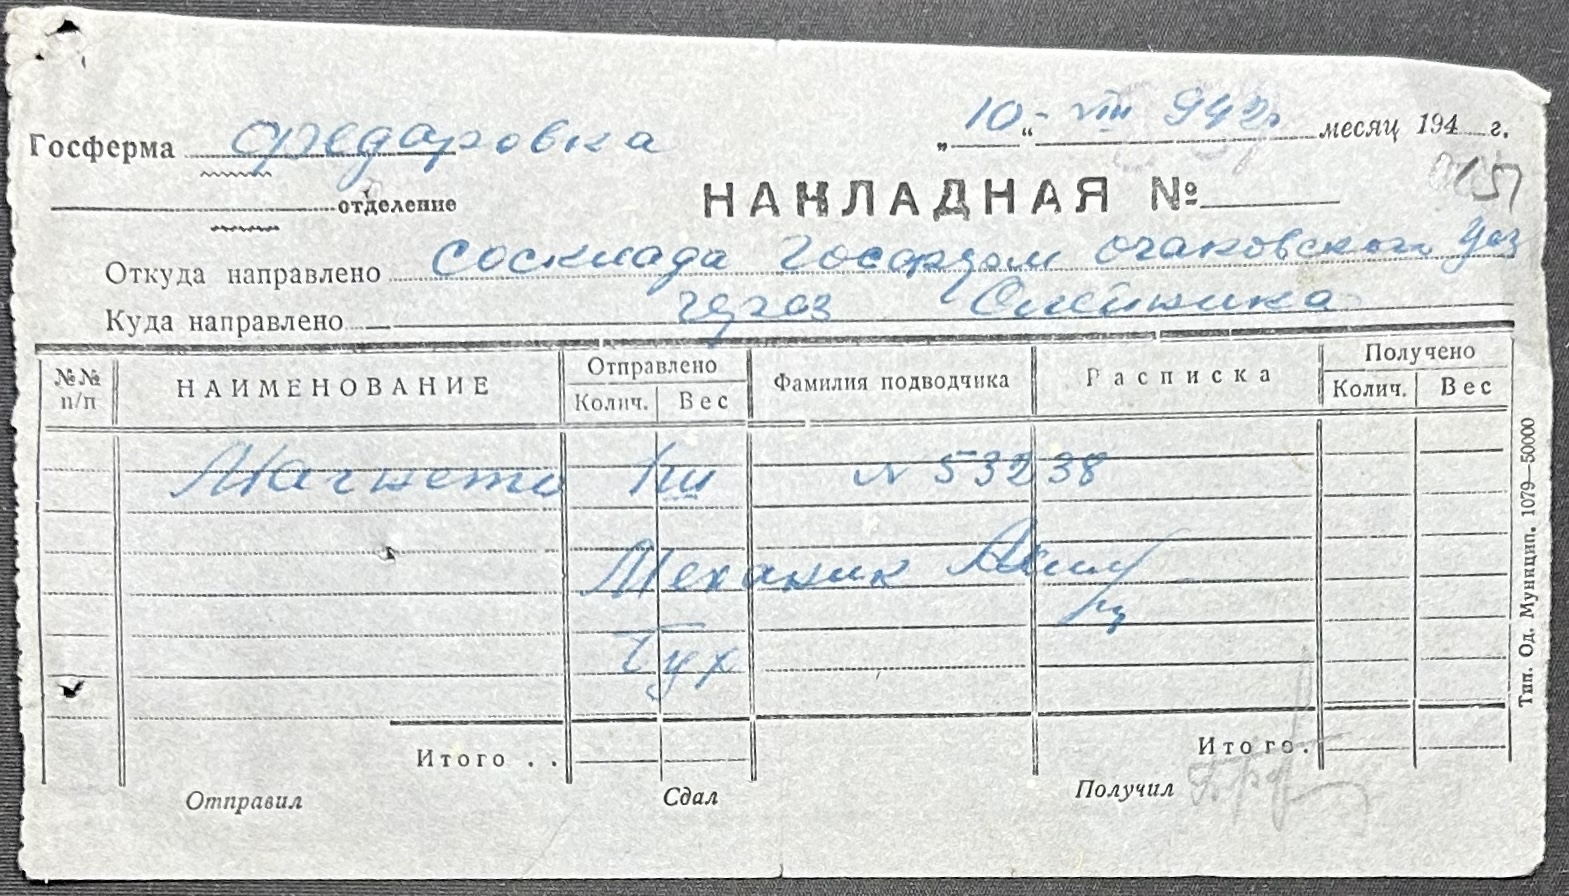 Госферма Федаровка
„10“ - VIII 942г месяц 194 г.
отделение
НАКЛАДНАЯ №
157
Откуда направлено соскиада Госферм очаковского
Куда направлено через Олейника
№№ п/п НАИМЕНОВАНИЕ Отправлено Колич. Вес Фамилия подводчика Расписка Получено Колич. Вес
Магнето 1 ш N 53238
Механик
Бух
Итого . . Итого.
Отправил Сдал Получил
Тип. Од. Муницип. 1079—50000